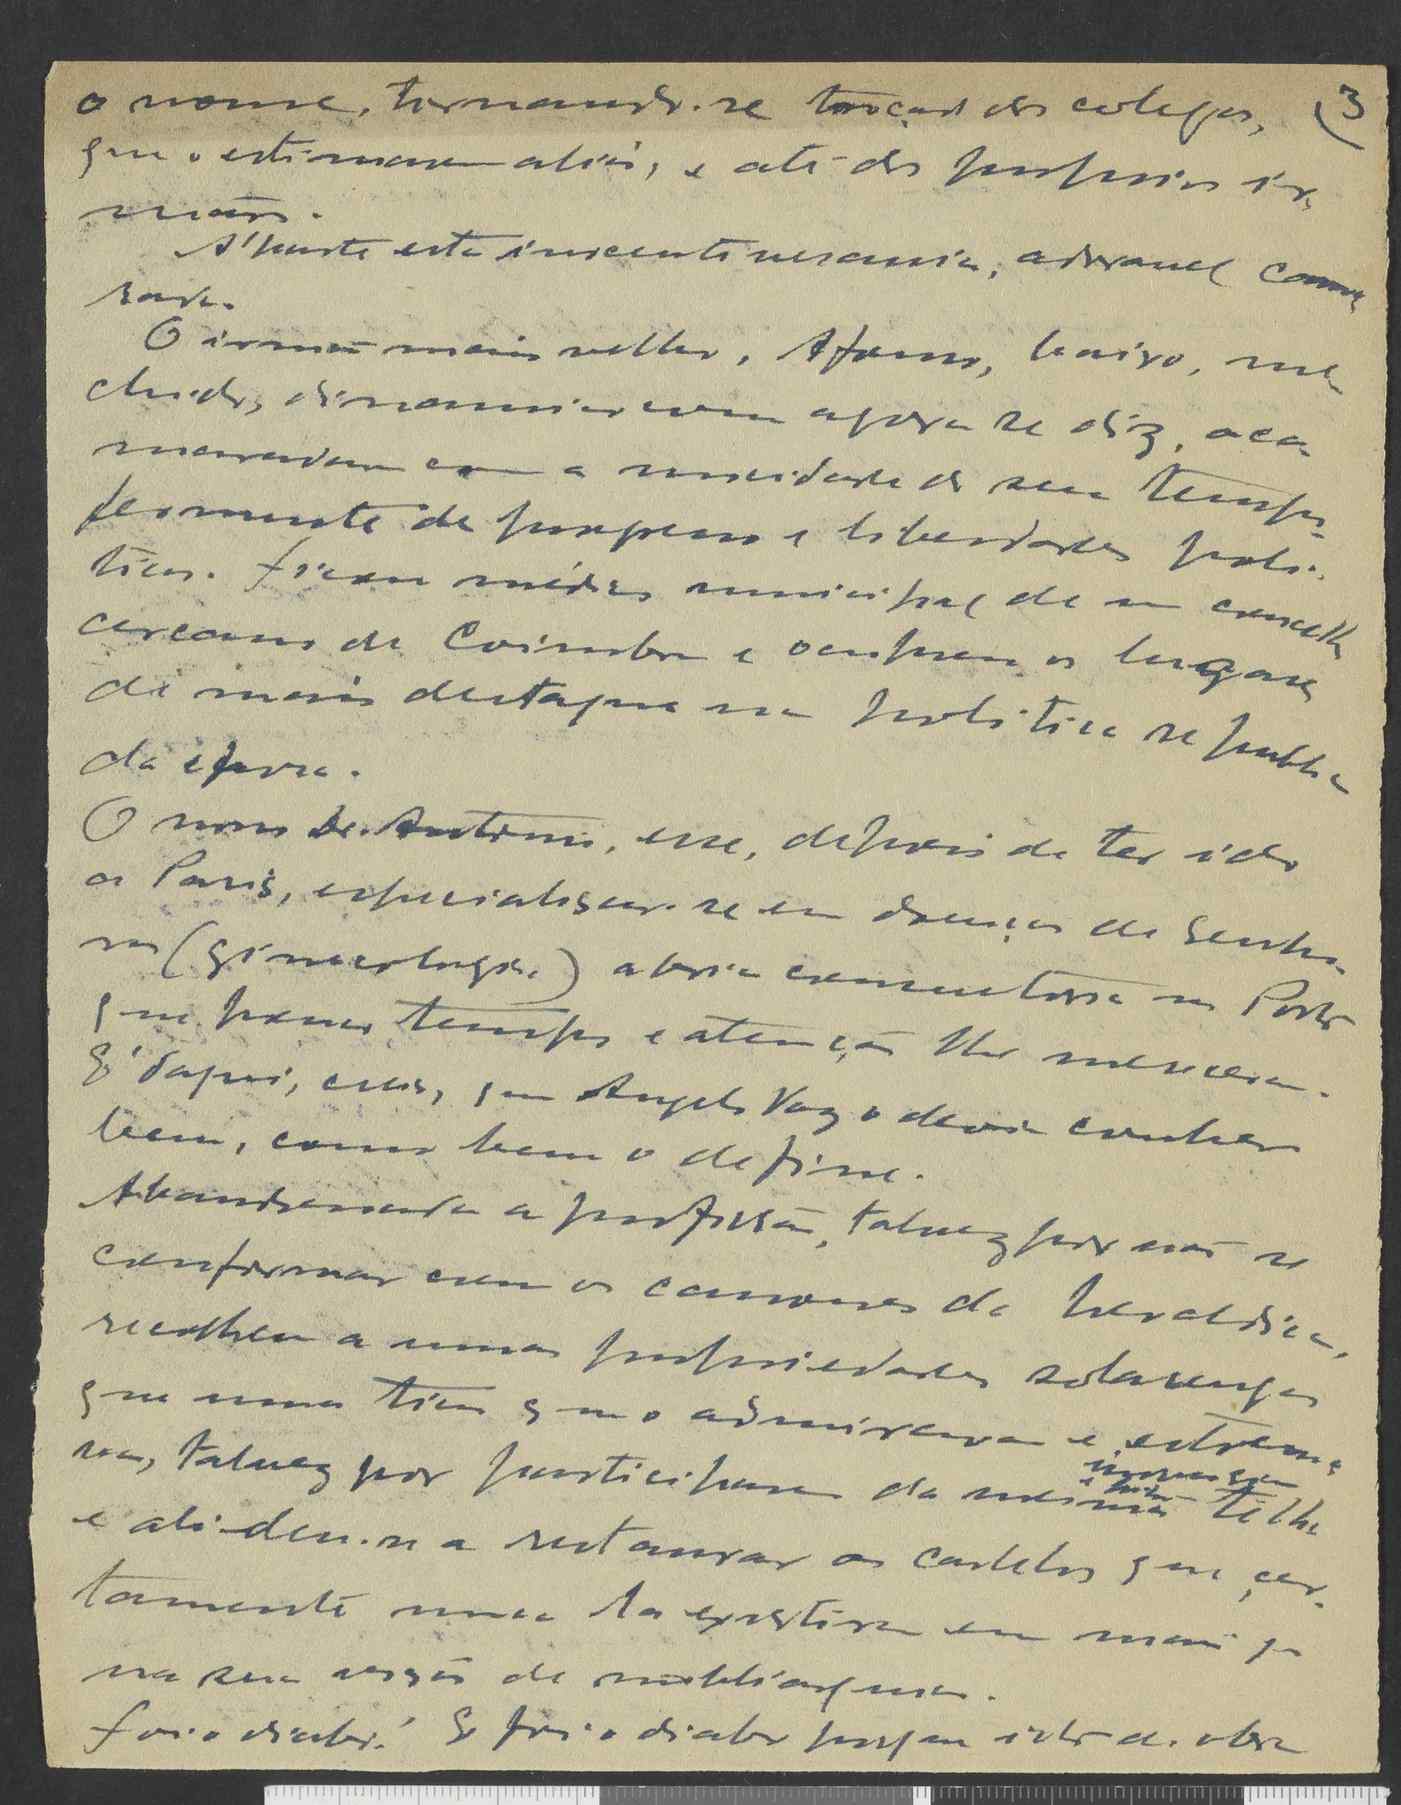 o nome, tornando-se troçado dos colegas, 3
que o estimavam aliás, e até dos proprios ir-
mãos.
A' parte esta inocente vesania, adoravel cama-
rada.
O irmão mais velho, Afonso, baixo, me-
chido, dinamico como agora se diz, aca-
maradara com a mocidade do seu tempo
fermente de progresso e liberdades poli-
ticas. Ficou médico municipal de um concelho
cercano de Coimbra e ocupou os lugares
de mais destaque na politica republica
da epoca.
O nosso Dr. Antonio, esse, depois de ter ido
a Paris, especialisar-se em doenças de senho-
ras (ginecologia) abria consultorio no Porto
que pouco tempo e atenção lhe merecera.
E' daqui, creio, que Angelo Vaz o devia conhecer
bem, como bem o define.
Abandonada a profissão, talvez por não se
conformar com os canones da heraldica,
recolheu a umas propriedades solarengas
que umas tias que o admiravam e estrema-
vam, talvez por participarem da mesma telha
e ali deu-se a restaurar os castelos que cer-
tamente nunca la existiram em mais que
na sua visão de nobliarquia.
Foi o diabo! E foi o diabo porque isto de obra